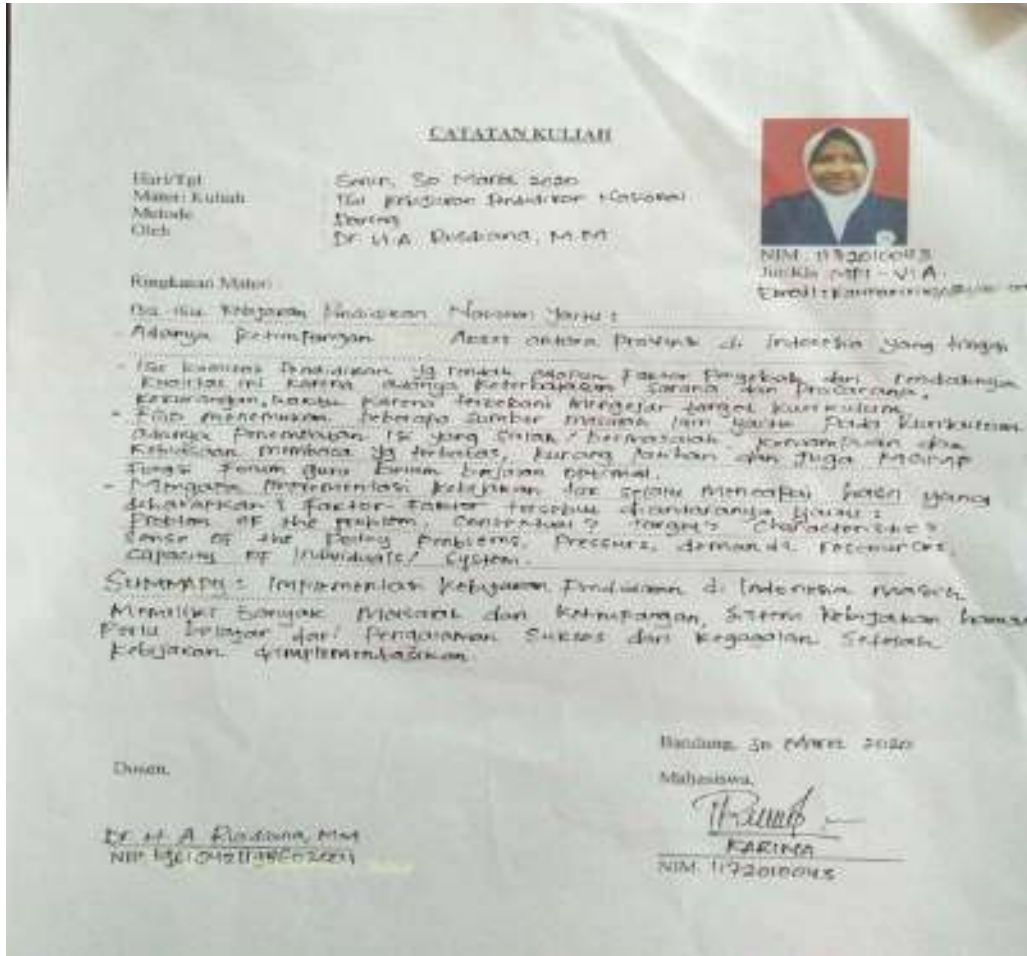 CATATAN KULIAH
Hari/Tgl : Senin, 30 Maret 2020
Materi Kuliah : Isu Kebijakan Pendidikan Nasional
Metode : Daring
Oleh : Dr. H. A. Rusdiana, M.M
NIM : 1172010043
Jur/Kls : MPI - VI A
Email :
Ringkasan Materi :
Isu-isu Kebijakan Pendidikan Nasional yaitu :
- Adanya ketimpangan Akses antara Provinsi di Indonesia yang tinggi
- Isu kualitas Pendidikan yg rendah Faktor Penyebab dari rendahnya
kualitas ini karena adanya keterbatasan sarana dan Prasarana,
kekurangan waktu karena terbebani Mengejar target kurikulum
- menemukan beberapa sumber masalah lain yaitu Pada Kurikulum
adanya Penempatan isi yang salah / bermasalah kemampuan dan
kebiasaan membaca yg terbatas, kurang latihan dan juga MGMP
forum guru belum berjalan optimal.
- Mengapa Implementasi kebijakan tak selalu Mencapai hasil yang
diharapkan ? faktor-faktor tersebut diantaranya yaitu :
Problem of the problem, Contextual, Target's Characteristic,
Sense of the Policy Problems, Pressure, demands, resources,
capacity of individuals/ System.
SUMMARY : Implementasi Kebijakan Pendidikan di Indonesia masih
Memiliki banyak Masalah dan ketimpangan, sistem kebijakan harus
Perlu belajar dari Pengalaman Sukses dan kegagalan Setelah
kebijakan diimplementasikan.
Bandung, 30 Maret 2020
Dosen,
Mahasiswa,
Dr. H. A. Rusdiana, MM
NIP.
KARIMA
NIM. 1172010043